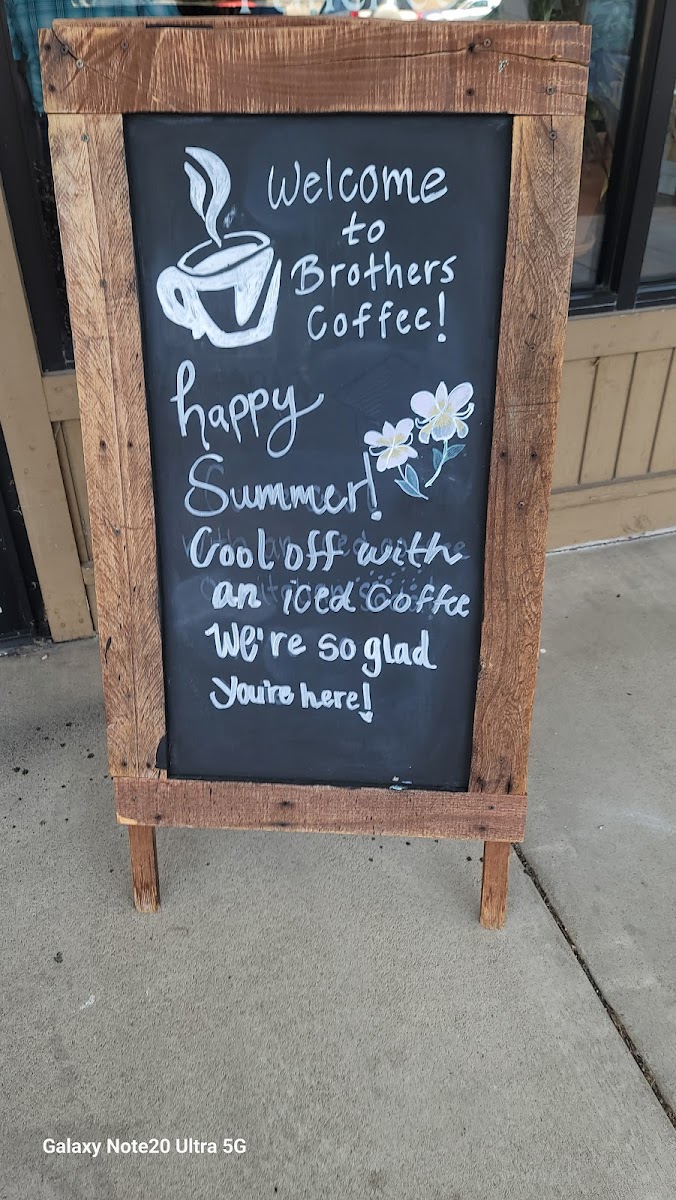 Welcome
to
Brothers
Coffee!
happy
Summer!
Cool off with
an iced Coffee
We're so glad
you're here!
Galaxy Note20 Ultra 5G